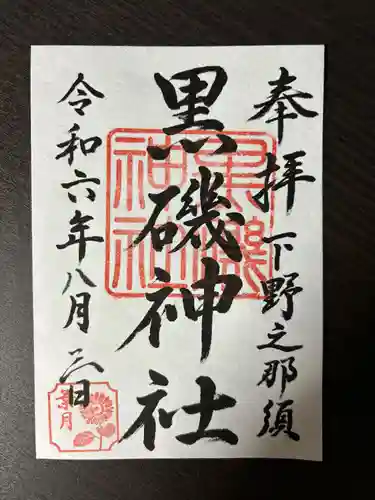 奉拝 下野之那須
黒磯神社
令和六年八月二日
葉月